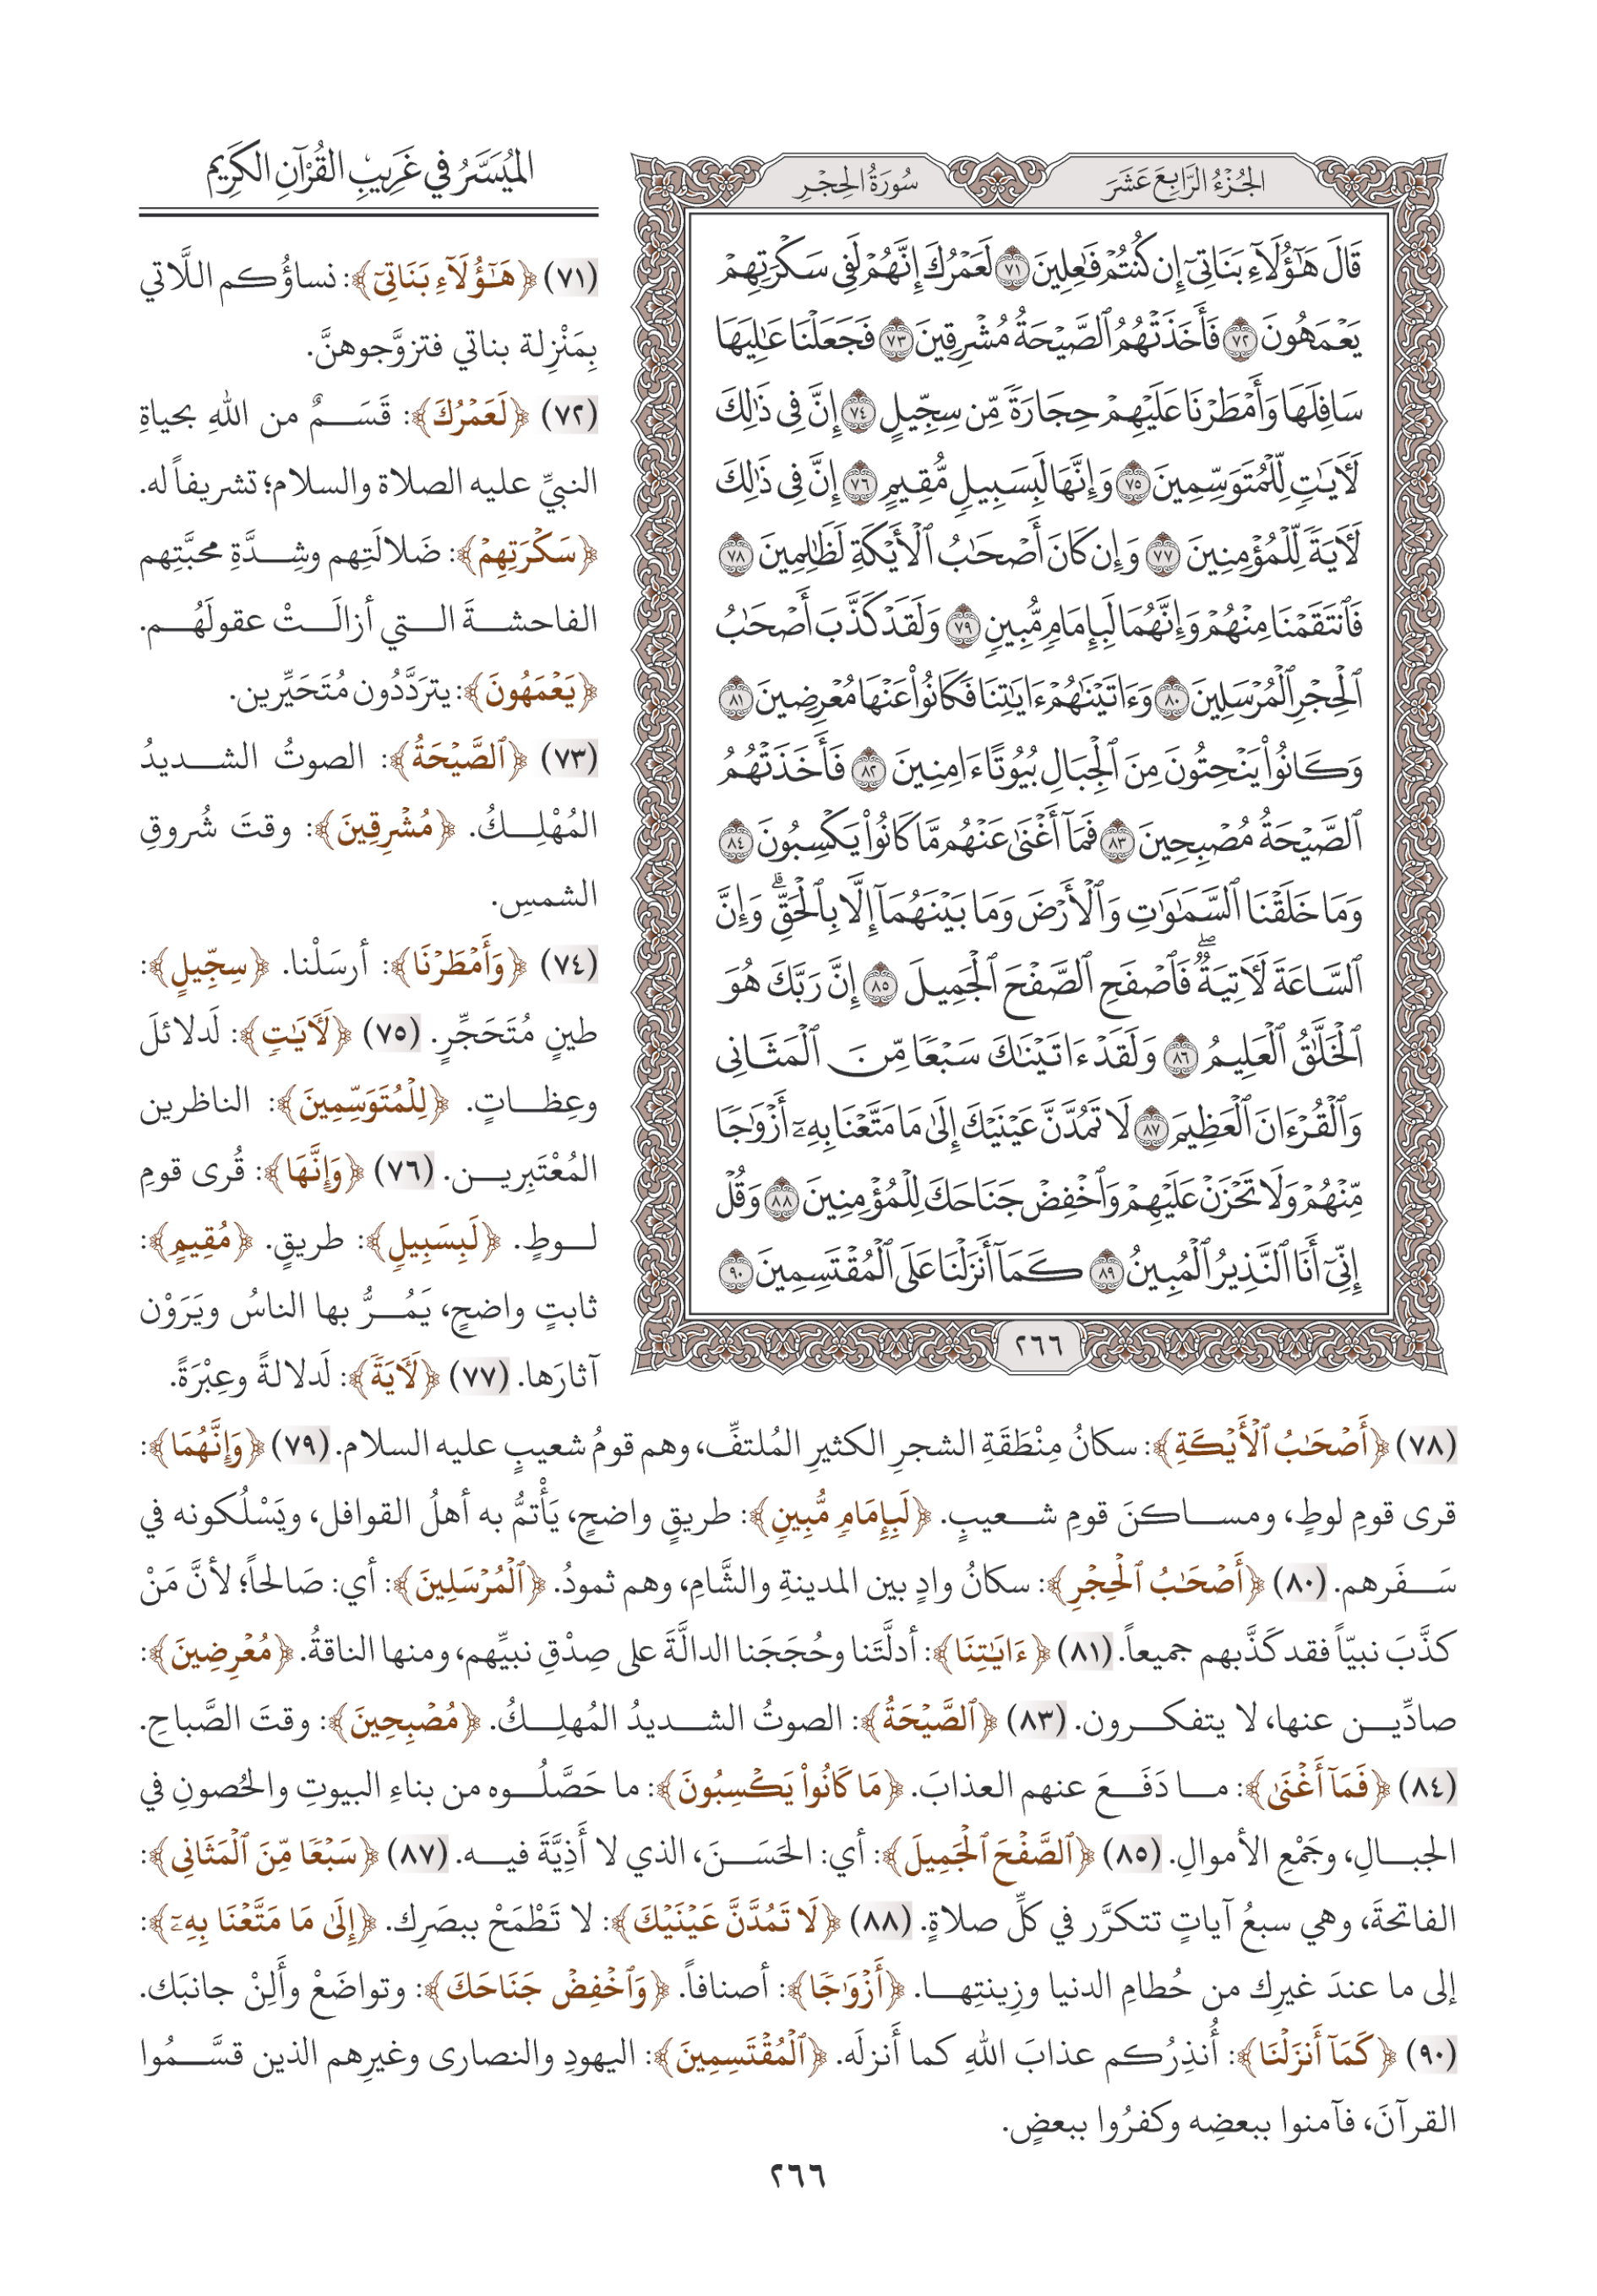 الجُزْءُ الرَّابِعَ عَشَرَ
سُورَةُ الحِجْرِ
قَالَ هَٰٓؤُلَآءِ بَنَاتِىٓ إِن كُنتُمْ فَٰعِلِينَ ٧١ لَعَمْرُكَ إِنَّهُمْ لَفِى سَكْرَتِهِمْ
يَعْمَهُونَ ٧٢ فَأَخَذَتْهُمُ ٱلصَّيْحَةُ مُشْرِقِينَ ٧٣ فَجَعَلْنَا عَٰلِيَهَا
سَافِلَهَا وَأَمْطَرْنَا عَلَيْهِمْ حِجَارَةً مِّن سِجِّيلٍ ٧٤ إِنَّ فِى ذَٰلِكَ
لَءَايَٰتٍ لِّلْمُتَوَسِّمِينَ ٧٥ وَإِنَّهَا لَبِسَبِيلٍ مُّقِيمٍ ٧٦ إِنَّ فِى ذَٰلِكَ
لَءَايَةً لِّلْمُؤْمِنِينَ ٧٧ وَإِن كَانَ أَصْحَٰبُ ٱلْأَيْكَةِ لَظَٰلِمِينَ ٧٨
فَٱنتَقَمْنَا مِنْهُمْ وَإِنَّهُمَا لَبِإِمَامٍ مُّبِينٍ ٧٩ وَلَقَدْ كَذَّبَ أَصْحَٰبُ
ٱلْحِجْرِ ٱلْمُرْسَلِينَ ٨٠ وَءَاتَيْنَٰهُمْ ءَايَٰتِنَا فَكَانُوا۟ عَنْهَا مُعْرِضِينَ ٨١
وَكَانُوا۟ يَنْحِتُونَ مِنَ ٱلْجِبَالِ بُيُوتًا ءَامِنِينَ ٨٢ فَأَخَذَتْهُمُ
ٱلصَّيْحَةُ مُصْبِحِينَ ٨٣ فَمَآ أَغْنَىٰ عَنْهُم مَّا كَانُوا۟ يَكْسِبُونَ ٨٤
وَمَا خَلَقْنَا ٱلسَّمَٰوَٰتِ وَٱلْأَرْضَ وَمَا بَيْنَهُمَآ إِلَّا بِٱلْحَقِّ ۗ وَإِنَّ
ٱلسَّاعَةَ لَءَاتِيَةٌ ۖ فَٱصْفَحِ ٱلصَّفْحَ ٱلْجَمِيلَ ٨٥ إِنَّ رَبَّكَ هُوَ
ٱلْخَلَّٰقُ ٱلْعَلِيمُ ٨٦ وَلَقَدْ ءَاتَيْنَٰكَ سَبْعًا مِّنَ ٱلْمَثَانِى
وَٱلْقُرْءَانَ ٱلْعَظِيمَ ٨٧ لَا تَمُدَّنَّ عَيْنَيْكَ إِلَىٰ مَا مَتَّعْنَا بِهِۦٓ أَزْوَٰجًا
مِّنْهُمْ وَلَا تَحْزَنْ عَلَيْهِمْ وَٱخْفِضْ جَنَاحَكَ لِلْمُؤْمِنِينَ ٨٨ وَقُلْ
إِنِّىٓ أَنَا ٱلنَّذِيرُ ٱلْمُبِينُ ٨٩ كَمَآ أَنزَلْنَا عَلَى ٱلْمُقْتَسِمِينَ ٩٠
٢٦٦
المُيَسَّرُ في غَرِيبِ القُرْآنِ الكَرِيمِ
(٧١) ﴿هَٰٓؤُلَآءِ بَنَاتِىٓ﴾: نساؤُكم اللَّاتي
بِمَنْزِلة بناتي فتزوَّجوهنَّ.
(٧٢) ﴿لَعَمْرُكَ﴾: قَسَمٌ من اللهِ بحياةِ
النبيِّ عليه الصلاة والسلام؛ تشريفاً له.
﴿سَكْرَتِهِمْ﴾: ضَلالَتِهم وشِدَّةِ محبَّتِهم
الفاحشةَ التي أزالَتْ عقولَهُم.
﴿يَعْمَهُونَ﴾: يتردَّدُون مُتَحَيِّرين.
(٧٣) ﴿ٱلصَّيْحَةُ﴾: الصوتُ الشديدُ
المُهْلِكُ. ﴿مُشْرِقِينَ﴾: وقتَ شُروقِ
الشمسِ.
(٧٤) ﴿وَأَمْطَرْنَا﴾: أرسَلْنا. ﴿سِجِّيلٍ﴾:
طينٍ مُتَحَجِّرٍ. (٧٥) ﴿لَءَايَٰتٍ﴾: لَدلائلَ
وعِظاتٍ. ﴿لِلْمُتَوَسِّمِينَ﴾: الناظرين
المُعْتَبِرين. (٧٦) ﴿وَإِنَّهَا﴾: قُرى قومِ
لوطٍ. ﴿لَبِسَبِيلٍ﴾: طريقٍ. ﴿مُقِيمٍ﴾:
ثابتٍ واضحٍ، يَمُرُّ بها الناسُ ويَرَوْن
آثارَها. (٧٧) ﴿لَءَايَةً﴾: لَدلالةً وعِبْرَةً.
(٧٨) ﴿أَصْحَٰبُ ٱلْأَيْكَةِ﴾: سكانُ مِنْطَقَةِ الشجرِ الكثيرِ المُلتفِّ، وهم قومُ شعيبٍ عليه السلام. (٧٩) ﴿وَإِنَّهُمَا﴾:
قرى قومِ لوطٍ، ومساكنَ قومِ شعيبٍ. ﴿لَبِإِمَامٍ مُّبِينٍ﴾: طريقٍ واضحٍ، يَأْتمُّ به أهلُ القوافل، ويَسْلُكونه في
سَفَرهم. (٨٠) ﴿أَصْحَٰبُ ٱلْحِجْرِ﴾: سكانُ وادٍ بين المدينةِ والشَّامِ، وهم ثمودُ. ﴿ٱلْمُرْسَلِينَ﴾: أي: صَالحاً؛ لأنَّ مَنْ
كذَّبَ نبيّاً فقد كَذَّبهم جميعاً. (٨١) ﴿ءَايَٰتِنَا﴾: أدلَّتَنا وحُجَجَنا الدالَّةَ على صِدْقِ نبيِّهم، ومنها الناقةُ. ﴿مُعْرِضِينَ﴾:
صادِّين عنها، لا يتفكرون. (٨٣) ﴿ٱلصَّيْحَةُ﴾: الصوتُ الشديدُ المُهلِكُ. ﴿مُصْبِحِينَ﴾: وقتَ الصَّباحِ.
(٨٤) ﴿فَمَآ أَغْنَىٰ﴾: ما دَفَعَ عنهم العذابَ. ﴿مَا كَانُوا۟ يَكْسِبُونَ﴾: ما حَصَّلُوه من بناءِ البيوتِ والحُصونِ في
الجبالِ، وجَمْعِ الأموالِ. (٨٥) ﴿ٱلصَّفْحَ ٱلْجَمِيلَ﴾: أي: الحَسَنَ، الذي لا أَذِيَّةَ فيه. (٨٧) ﴿سَبْعًا مِّنَ ٱلْمَثَانِى﴾:
الفاتحةَ، وهي سبعُ آياتٍ تتكرَّر في كلِّ صلاةٍ. (٨٨) ﴿لَا تَمُدَّنَّ عَيْنَيْكَ﴾: لا تَطْمَحْ ببصَرِك. ﴿إِلَىٰ مَا مَتَّعْنَا بِهِۦٓ﴾:
إلى ما عندَ غيرِك من حُطامِ الدنيا وزِينتِها. ﴿أَزْوَٰجًا﴾: أصنافاً. ﴿وَٱخْفِضْ جَنَاحَكَ﴾: وتواضَعْ وأَلِنْ جانبَك.
(٩٠) ﴿كَمَآ أَنزَلْنَا﴾: أُنذِرُكم عذابَ اللهِ كما أَنزلَه. ﴿ٱلْمُقْتَسِمِينَ﴾: اليهودِ والنصارى وغيرِهم الذين قسَّمُوا
القرآنَ، فآمنوا ببعضِه وكفرُوا ببعضٍ.
٢٦٦